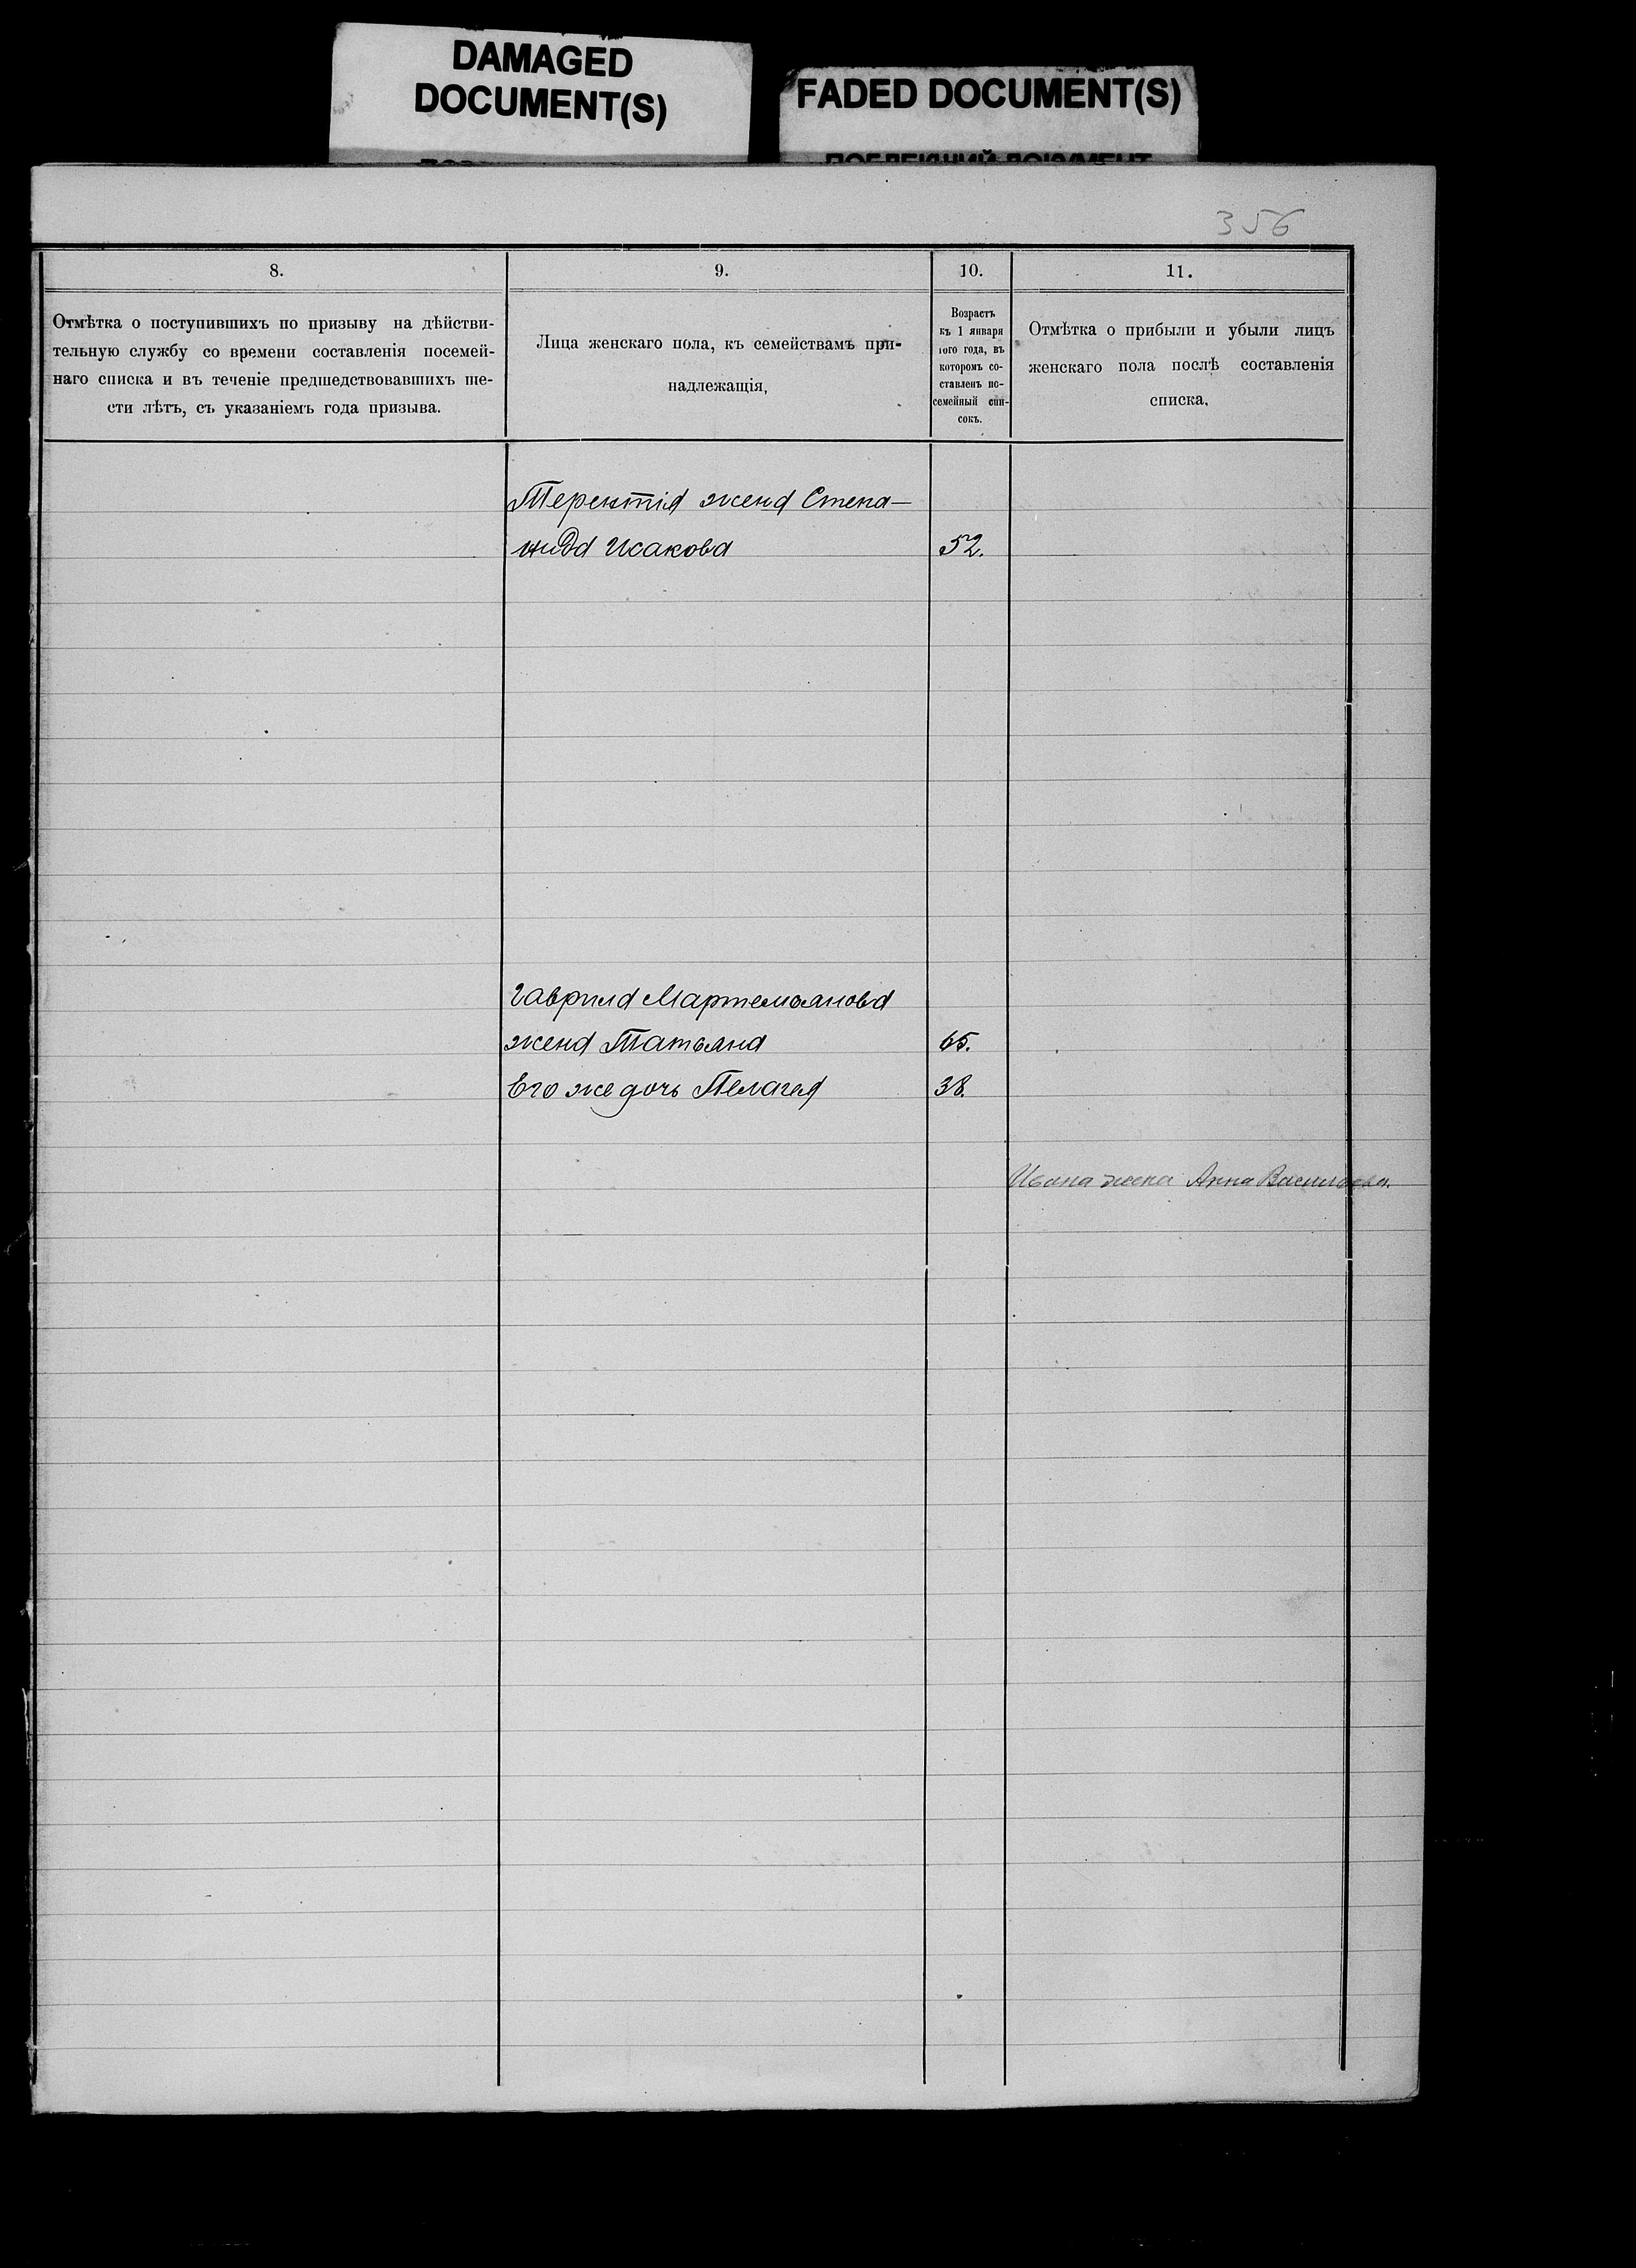 DAMAGED
DOCUMENT(S)
FADED DOCUMENT(S)
ПОБЛЕКШИЙ ДОКУМЕНТ
356
8.
9.
10.
11.
Отмѣтка о поступившихъ по призыву на дѣйстви-
тельную службу со времени составленія посемей-
наго списка и въ теченіе предшедствовавшихъ ше-
сти лѣтъ, съ указаніемъ года призыва.
Лица женскаго пола, къ семействамъ при-
надлежащія,
Возрастъ
къ 1 января
того года, въ
которомъ со-
ставленъ по-
семейный спи-
сокъ.
Отмѣтка о прибыли и убыли лицъ
женскаго пола послѣ составленія
списка,
Терентія жена Степа-
нида Исакова 52.
Гаврила Мартемьянова
жена Татьяна 65.
Его же дочь Пелагея 38.
Ивана жена Анна Васильева.